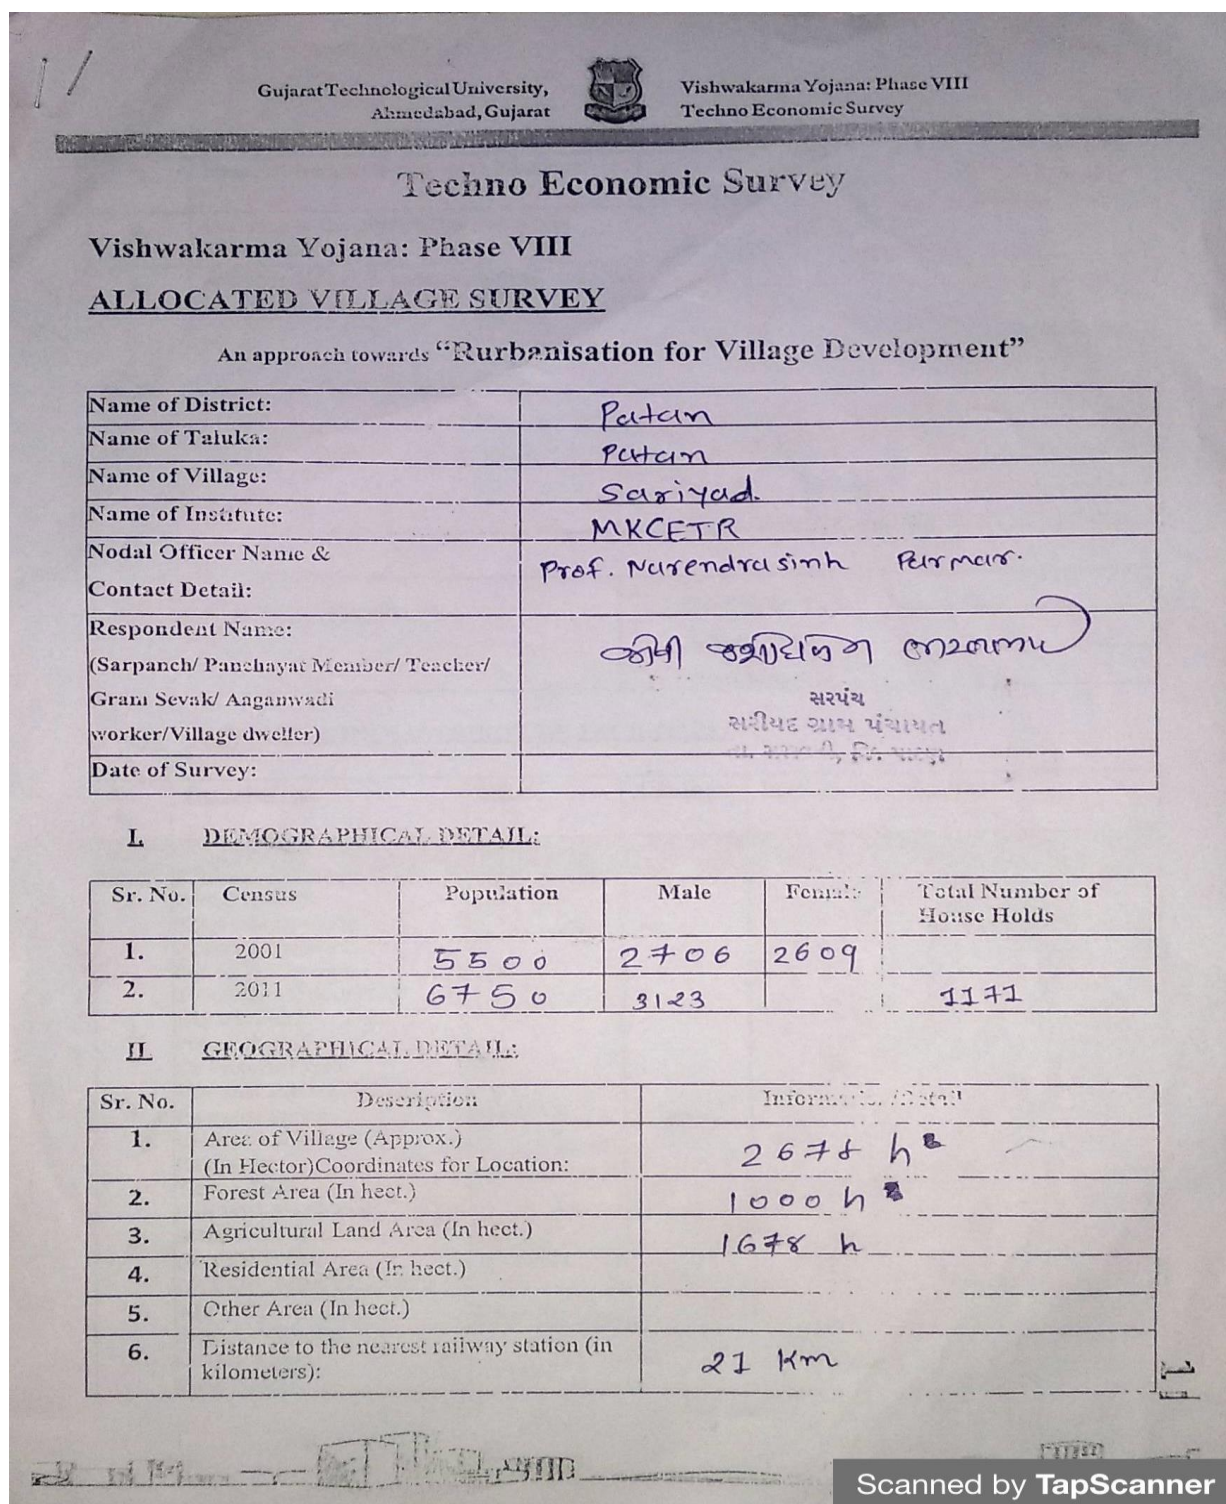 Gujarat Technological University,
Ahmedabad, Gujarat
Vishwakarma Yojana: Phase VIII
Techno Economic Survey
Techno Economic Survey
Vishwakarma Yojana: Phase VIII
ALLOCATED VILLAGE SURVEY
An approach towards “Rurbanisation for Village Development”
Name of District: Patan
Name of Taluka: Patan
Name of Village: Sariyad.
Name of Institute: MKCETR
Nodal Officer Name &
Contact Detail:
Prof. Narendrasinh Parmar.
Respondent Name:
(Sarpanch/ Panchayat Member/ Teacher/
Gram Sevak/ Aaganwadi
worker/Village dweller)
સરપંચ
સરીયદ ગ્રામ પંચાયત
Date of Survey:
I. DEMOGRAPHICAL DETAIL:
Sr. No. Census Population Male Female Total Number of
House Holds
1. 2001 5500 2706 2609
2. 2011 6750 3123 1171
II. GEOGRAPHICAL DETAIL:
Sr. No. Description Information/Detail
1. Area of Village (Approx.)
(In Hector)Coordinates for Location:
2678 h
2. Forest Area (In hect.) 1000 h
3. Agricultural Land Area (In hect.) 1678 h
4. Residential Area (In hect.)
5. Other Area (In hect.)
6. Distance to the nearest railway station (in
kilometers):
21 Km
1
Scanned by TapScanner